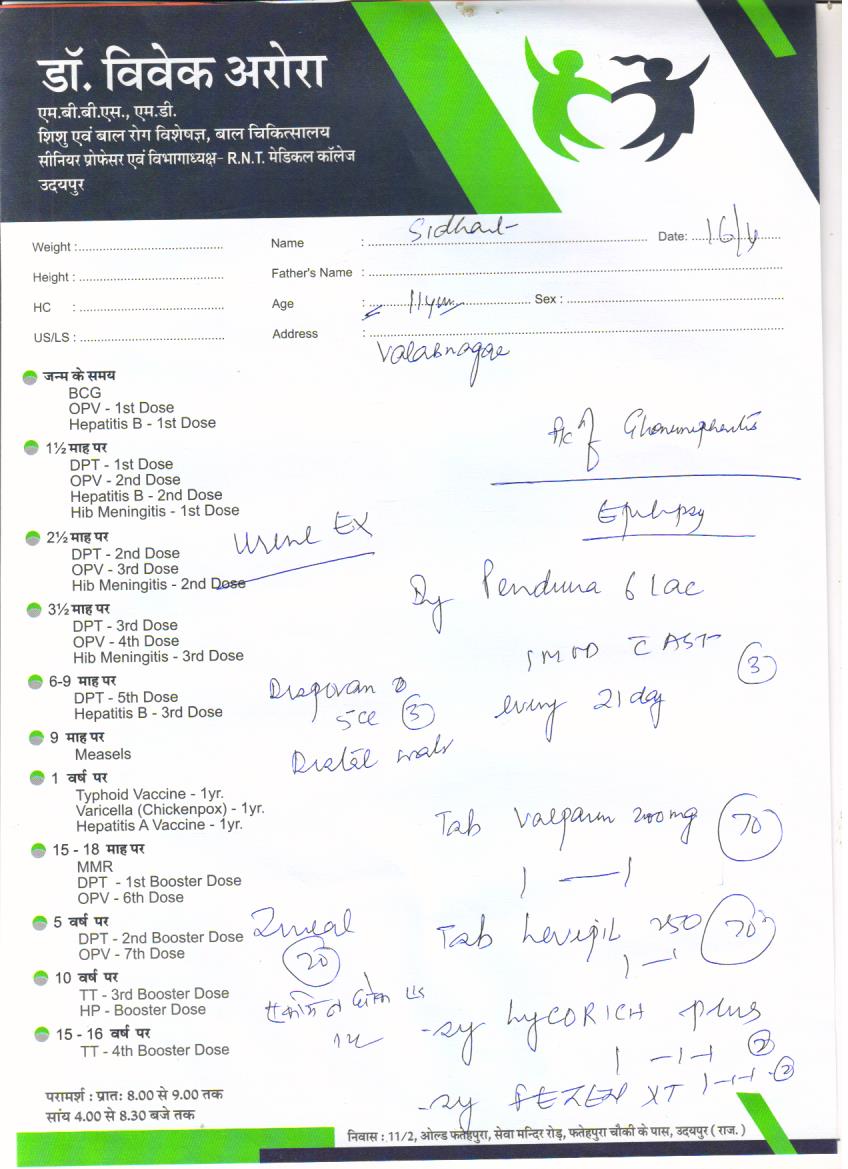 डॉ. विवेक अरोरा
एम.बी.बी.एस., एम.डी.
शिशु एवं बाल रोग विशेषज्ञ, बाल चिकित्सालय
सीनियर प्रोफेसर एवं विभागाध्यक्ष- R.N.T. मेडिकल कॉलेज
उदयपुर
Weight : Name : Sidhant Date: 16/
Height : Father's Name :
HC : Age : 11 Sex :
US/LS : Address : Valabnagar
जन्म के समय
BCG
OPV - 1st Dose
Hepatitis B - 1st Dose
1½ माह पर
DPT - 1st Dose
OPV - 2nd Dose
Hepatitis B - 2nd Dose
Hib Meningitis - 1st Dose
2½ माह पर
DPT - 2nd Dose
OPV - 3rd Dose
Hib Meningitis - 2nd Dose
3½ माह पर
DPT - 3rd Dose
OPV - 4th Dose
Hib Meningitis - 3rd Dose
6-9 माह पर
DPT - 5th Dose
Hepatitis B - 3rd Dose
9 माह पर
Measels
1 वर्ष पर
Typhoid Vaccine - 1yr.
Varicella (Chickenpox) - 1yr.
Hepatitis A Vaccine - 1yr.
15 - 18 माह पर
MMR
DPT - 1st Booster Dose
OPV - 6th Dose
5 वर्ष पर
DPT - 2nd Booster Dose
OPV - 7th Dose
10 वर्ष पर
TT - 3rd Booster Dose
HP - Booster Dose
15 - 16 वर्ष पर
TT - 4th Booster Dose
Urine Ex
5cc 3
20
Epilepsy
6 lac
3
every 21 day
Tab 200mg 70
1 — 1
Tab Levipil 250 70
1 - 1
sy LYCORICH plus
1 -1-1 2
sy XT 1-1-1 2
परामर्श : प्रातः 8.00 से 9.00 तक
सांय 4.00 से 8.30 बजे तक
निवास : 11/2, ओल्ड फतेहपुरा, सेवा मन्दिर रोड़, फतेहपुरा चौकी के पास, उदयपुर ( राज. )